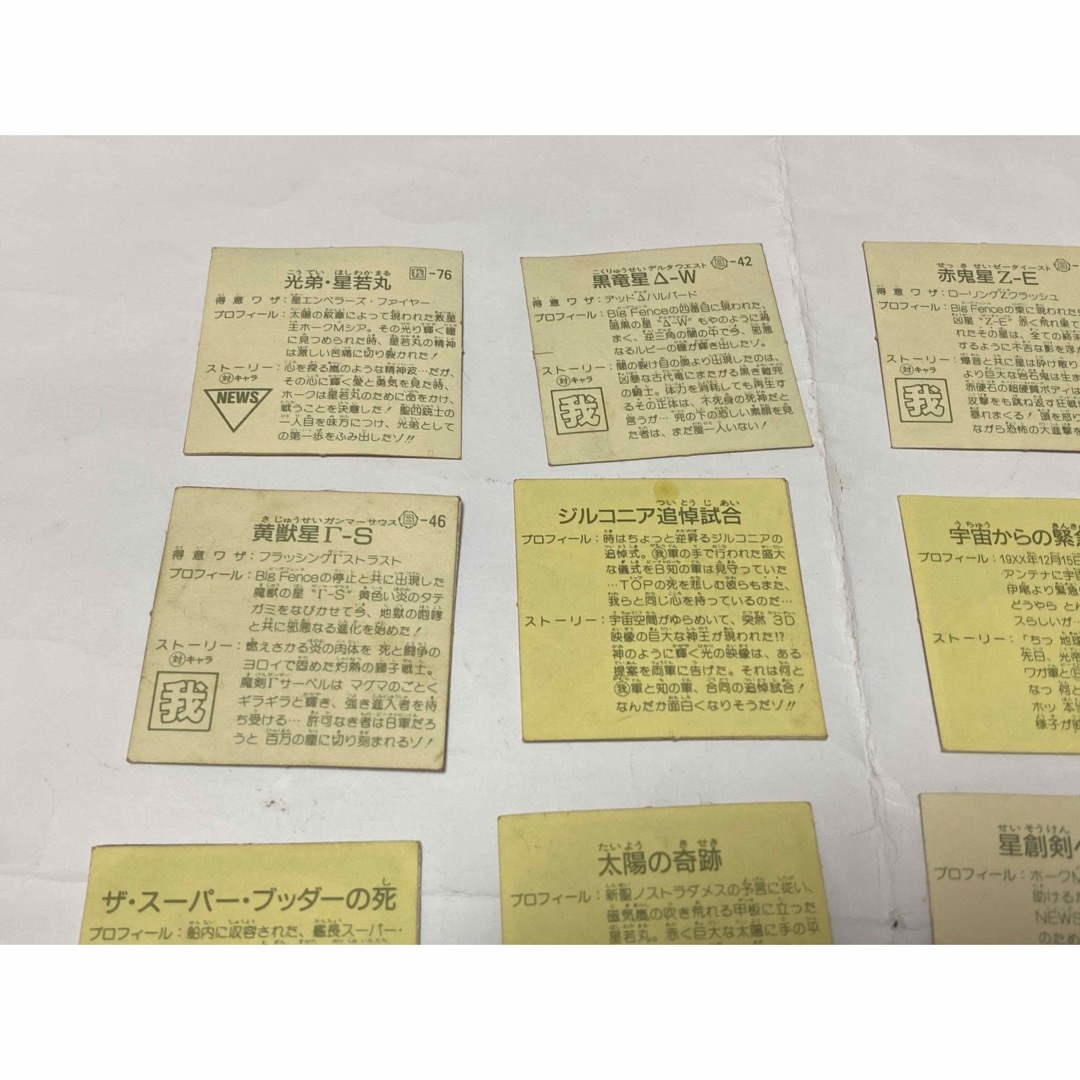 光弟・星若丸 -76
こうてい ほしわかまる
得意ワザ：星エンペラーズ・ファイヤー
プロフィール：太陽の紋章によって現われた救星
王ホークMシア。その光り輝く瞳
に見つめられた時、星若丸の精神
は激しい苦痛に切り裂かれた！
ストーリー：心を探る嵐のような精神波…だが、
対キャラ その心に輝く愛と勇気を見た時、
NEWS ホークは星若丸のために命をかけ、
戦うことを決意した！ 聖四銃士の
一人目を味方につけ、光弟として
の第一歩をふみ出したソ!!
こくりゅうせい デルタウエスト
黒竜星Δ-W -42
得意ワザ：デッドΔハルバード
プロフィール：Big Fenceの四番目に現われた、
暗黒の星“Δ-W” もやのように渦
まく、逆三角の闇の中で今、邪悪
なるルビーの瞳が輝き出したソ。
ストーリー：闇の裂け目の奥より出現したのは、
対キャラ 凶暴な古代竜にまたがる黒き鎧兜
我 の騎士。体力を消耗しても再生す
るその正体は、不死身の死神だと
言うが… 兜の下の激しい素顔を見
た者は、まだ誰一人いない！
せっきせい ゼータイースト
赤鬼星Z-E
得意ワザ：ローリングZクラッシュ
プロフィール：Big Fenceの東に現われた
凶星“Z-E” 赤く荒れ果て
れたその星は、全ての
するように不吉な影を浮か
ストーリー：爆音と共に星は砕け散り
対キャラ より巨大な岩石鬼は生ま
我 赤硬石の超硬質ボディは
攻撃をも跳ね返す狂戦
暴れまくる！ 頭を怒り
ながら恐怖の大進撃を
きじゅうせい ガンマーサウス
黄獣星Γ-S -46
得意ワザ：フラッシングΓストラスト
プロフィール：Big Fenceの停止と共に出現した
魔獣の星“Γ-S” 黄色い炎のタテ
ガミをなびかせて今、地獄の咆哮
と共に邪悪なる進化を始めた！
ストーリー：燃えさかる炎の肉体を 死と闘争の
対キャラ ヨロイで固めた灼熱の獅子戦士。
我 魔剣Γサーベルは マグマのごとく
ギラギラと輝き、強き進入者を待
ち受ける… 許可なき者はB軍だろ
うと 百万の瞳に切り刻まれるゾ！
ついとうじあい
ジルコニア追悼試合
プロフィール：時はちょっと逆昇るジルコニアの
追悼式。我軍の手で行われた盛大
な儀式をB知の軍は見守っていた
…TOPの死を悲しむ彼らもまた、
我らと同じ心を持っているのだ…
ストーリー：宇宙空間がゆらめいて、突然 3D
映像の巨大な神王が現われた!?
神のように輝く光の映像は、ある
提案を両軍に告げた。それは何と
我軍と知の軍、合同の追悼試合！
なんだか面白くなりそうだゾ!!
うちゅう きんきゅう
宇宙からの緊急
プロフィール：19XX年12月15日
アンテナに宇宙
伊尾より緊急
どうやら とん
スらしいが…
ストーリー：「ちっ 地球
先日、光帝
ワガ軍と
なっ 何と
ホッ 本
様子が
ザ・スーパー・ブッダーの死
プロフィール：船内に収容された、艦長スーパー・
たいよう きせき
太陽の奇跡
プロフィール：新聖ノストラダメスの予言に従い、
磁気嵐の吹き荒れる甲板に立った
星若丸。赤く巨大な太陽に手の平
せいそうけん
星創剣へ
プロフィール：ホークM
助けるか
NEWS
のため